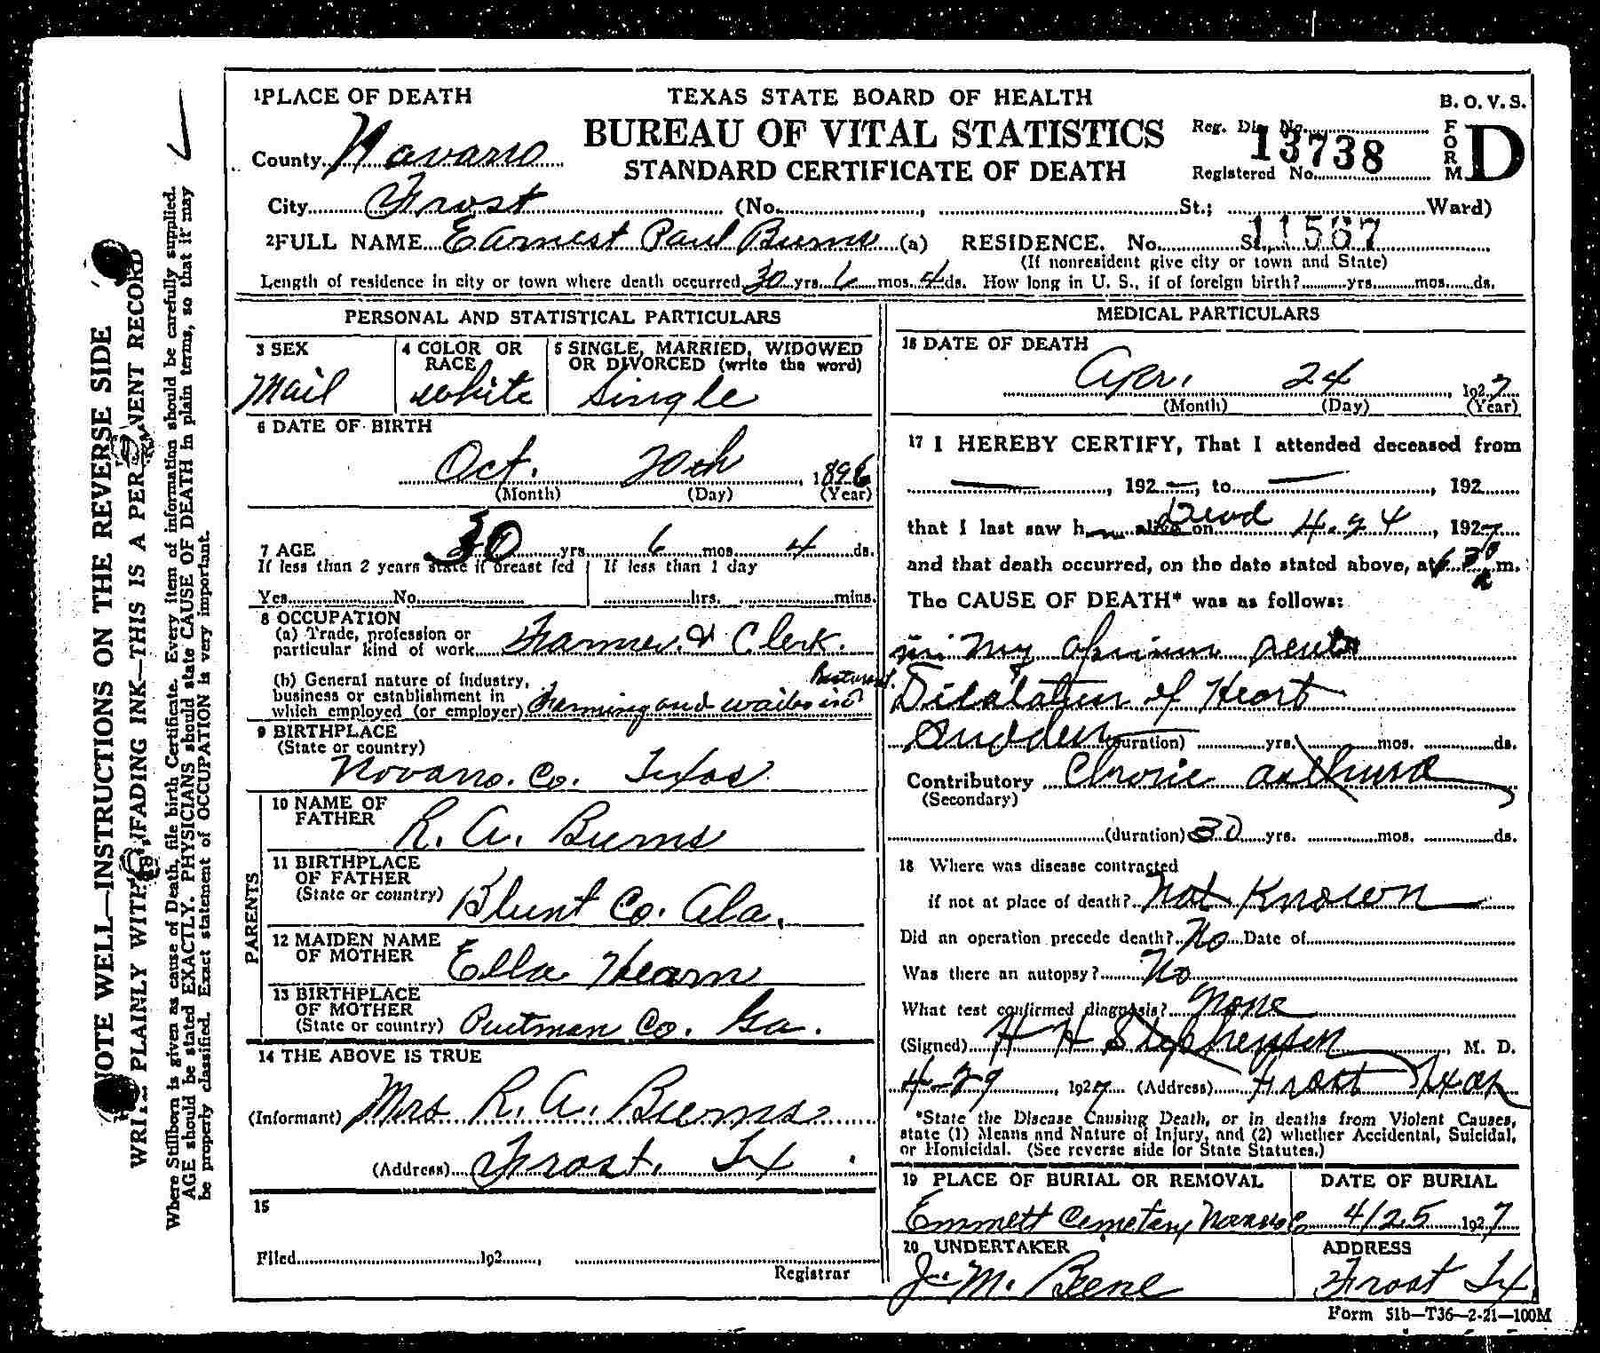 1PLACE OF DEATH
TEXAS STATE BOARD OF HEALTH
B. O. V. S.
BUREAU OF VITAL STATISTICS
STANDARD CERTIFICATE OF DEATH
Reg. Dis. No.
13738
Registered No.
FORM D
County Navarro
City Frost (No. , St.; Ward)
2FULL NAME Earnest Paul Burns (a) RESIDENCE. No. St. 11567
(If nonresident give city or town and State)
Length of residence in city or town where death occurred 30 yrs. 6 mos. 4 ds. How long in U. S., if of foreign birth? yrs. mos. ds.
PERSONAL AND STATISTICAL PARTICULARS
3 SEX
Mail
4 COLOR OR RACE
white
5 SINGLE, MARRIED, WIDOWED OR DIVORCED (write the word)
Single
6 DATE OF BIRTH
Oct. 20th, 1896
(Month) (Day) (Year)
7 AGE 30 yrs. 6 mos. 4 ds.
If less than 2 years state if breast fed
If less than 1 day
Yes No
hrs. mins.
8 OCCUPATION
(a) Trade, profession or
particular kind of work Farmer & Clerk.
(b) General nature of industry,
business or establishment in
which employed (or employer) Farming and
9 BIRTHPLACE
(State or country)
Navarro. Co. Texas
PARENTS
10 NAME OF FATHER
R. A. Burns
11 BIRTHPLACE OF FATHER
(State or country) Blunt Co. Ala.
12 MAIDEN NAME OF MOTHER
Ella Hearn
13 BIRTHPLACE OF MOTHER
(State or country) Putman Co. Ga.
14 THE ABOVE IS TRUE
(Informant) Mrs R. A. Burns
(Address) Frost, Tx
15
Filed 192 ,
Registrar
MEDICAL PARTICULARS
16 DATE OF DEATH
Apr. 24, 1927
(Month) (Day) (Year)
17 I HEREBY CERTIFY, That I attended deceased from
— , 192 —, to — , 192
that I last saw h alive on Dead 4-24, 1927
and that death occurred, on the date stated above, at 6 30 a m.
The CAUSE OF DEATH* was as follows:
in my opinion acute
Dilalation of Heart
Sudden (duration) yrs. mos. ds.
Contributory Chronic asthma
(Secondary)
(duration) 30 yrs. mos. ds.
18 Where was disease contracted
if not at place of death? Not Known
Did an operation precede death? No Date of
Was there an autopsy? No
What test confirmed diagnosis? None
(Signed) H H Stephenson, M. D.
4-29, 1927 (Address) Frost Texas
*State the Disease Causing Death, or in deaths from Violent Causes,
state (1) Means and Nature of Injury, and (2) whether Accidental, Suicidal,
or Homicidal. (See reverse side for State Statutes.)
19 PLACE OF BURIAL OR REMOVAL
Emmett Cemetary Navarro Co
DATE OF BURIAL
4/25 1927
20 UNDERTAKER
J. M. Beene
ADDRESS
Frost Tx
Form 51b—T36—2-21—100M
NOTE WELL—INSTRUCTIONS ON THE REVERSE SIDE
WRITE PLAINLY WITH UNFADING INK—THIS IS A PERMANENT RECORD
Where Stillborn is given as cause of Death, file birth Certificate. Every item of information should be carefully supplied.
AGE should be stated EXACTLY. PHYSICIANS should state CAUSE OF DEATH in plain terms, so that it may
be properly classified. Exact statement of OCCUPATION is very important.